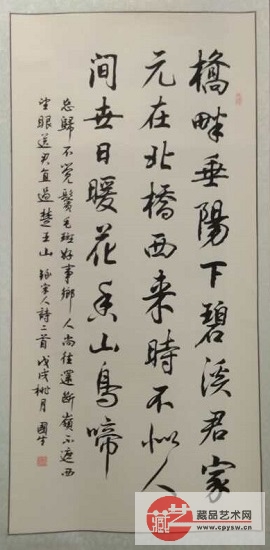 橋畔垂陽下碧溪君家
元在北橋西来時不似人
間世日暖花香山鳥啼
忘歸不覺鬢毛斑好事鄉人尚往還斷嶺不遮西
望眼送君直過楚王山 錄宋人詩二首 戊戌桃月 國生
藏品艺术网
www.cpysw.cn